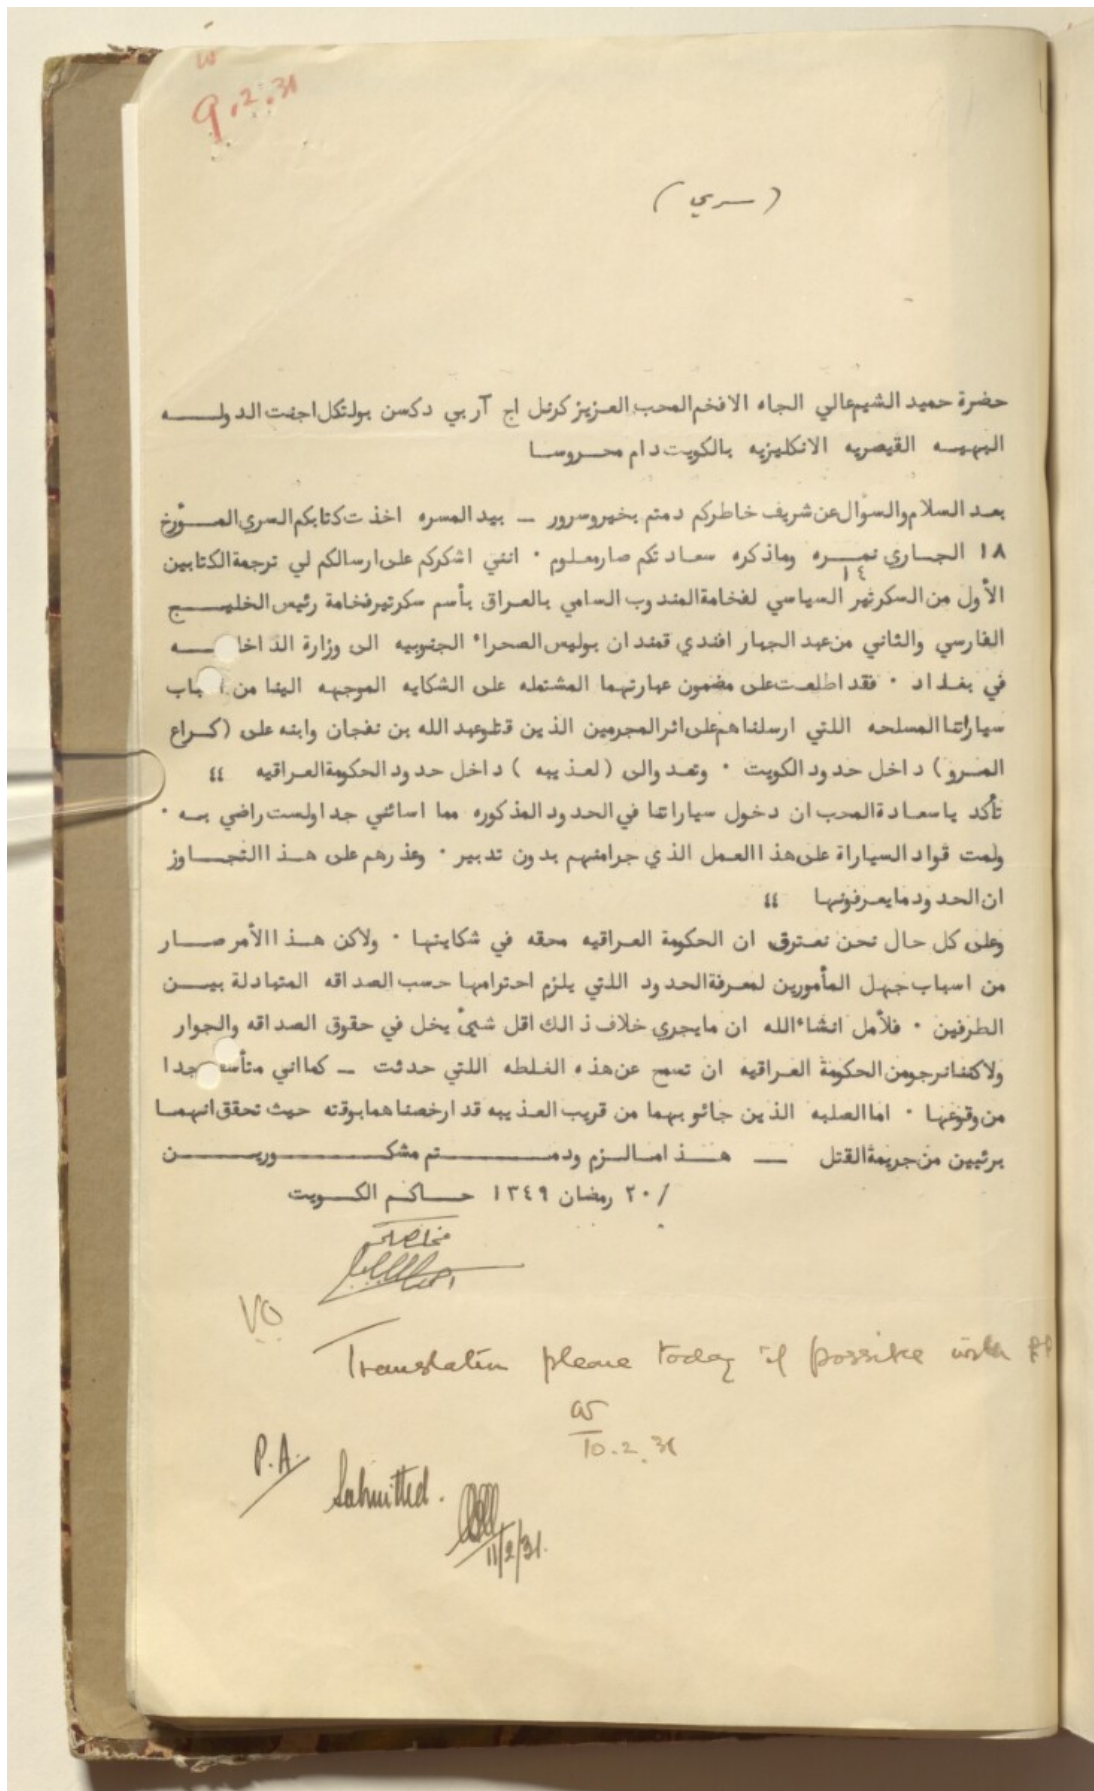 9.2.31
( سري )
حضرة حميد الشيم عالي الجاه الافخم المحب العزيز كرنل اج آر بي دكسن بولتكل اجنت الدولــه
البهيـه القيصريه الانكليزيه بالكويت دام محـروسا
بعد السلام والسوءال عن شريف خاطركم دمتم بخير وسرور ــ بيد المسره اخذت كتابكم السري المــؤرخ
١٨ الجاري نمـره ١٤ وماذكره سعادتكم صار معلوم ٠ انني اشكركم على ارسالكم لي ترجمة الكتابين
الأول من السكرتير السياسي لفخامة المندوب السامي بالعراق بأسم سكرتير فخامة رئيس الخليــج
الفارسي والثاني من عبد الجبار افندي قمندان بوليس الصحراء الجنوبيه الى وزارة الداخــه
في بغداد ٠ فقد اطلعت على مضمون عبارتهما المشتمله على الشكايه الموجهه الينا من باب
سياراتنا المسلحه اللتي ارسلناهم على اثر المجرمين الذين قتلو عبد الله بن نفجان وابنه على (كـراع
المـرو) داخل حدود الكويت ٠ وتعدوالى (لعذيبه ) داخل حدود الحكومة العراقيه ،،
تأكد ياسعادة المحب ان دخول سياراتنا في الحدود المذكوره مما اسائني جدا ولست راضي بـه ٠
ولمت قواد السياراة على هذا العمل الذي جرامنهم بدون تدبير ٠ وعذرهم على هـذا التجــاوز
ان الحدود مايعرفونها ،،
وعلى كل حال نحن نعترف ان الحكومة العراقيه محقه في شكايتها ٠ ولاكن هـذا الأمر صــار
من اسباب جهل المأمورين لمعرفة الحدود اللتي يلزم احترامها حسب الصداقه المتبادلة بيــن
الطرفين ٠ فلأمل انشاءالله ان مايجري خلاف ذالك اقل شيئ يخل في حقوق الصداقه والجوار
ولاكننا نرجو من الحكومة العراقيه ان تسمح عن هذه الغلطه اللتي حدثت ــ كما اني متأسف جدا
من وقوعها ٠ اما الصلبه الذين جائو بهما من قريب العذيبه قد ارخصناهما بوقته حيث تحقق انهمـا
برئيين من جريمة القتل ــ هـذا مالـزم ودمـــتم مشكـــوريـــن
/ ٢٠ رمضان ١٣٤٩ حـاكـم الكـويت
مخلصكم
احمد الجابر
Translation please today if possible
10.2.31
P.A.
Submitted.
11/2/31.